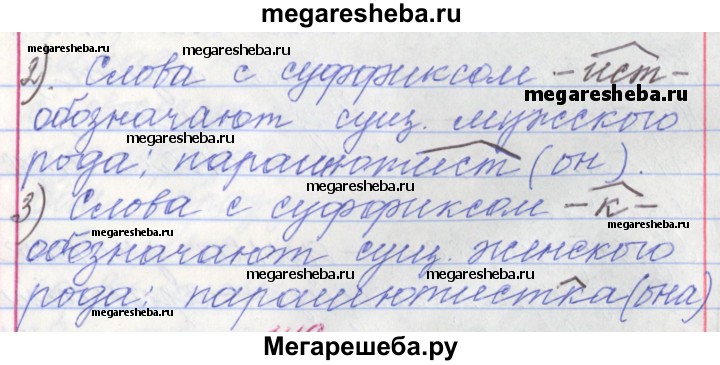 megaresheba.ru
megaresheba.ru megaresheba.ru
2). Слова с суффиксом -ист-
megaresheba.ru
обозначают сущ. мужского
megaresheba.ru megaresheba.ru
рода: парашютист (он).
megaresheba.ru megaresheba.ru
3) Слова с суффиксом -к-
megaresheba.ru
обозначают сущ. женского
megaresheba.ru megaresheba.ru
рода: парашютистка (она)
megaresheba.ru megaresheba.ru
Мегарешеба.ру